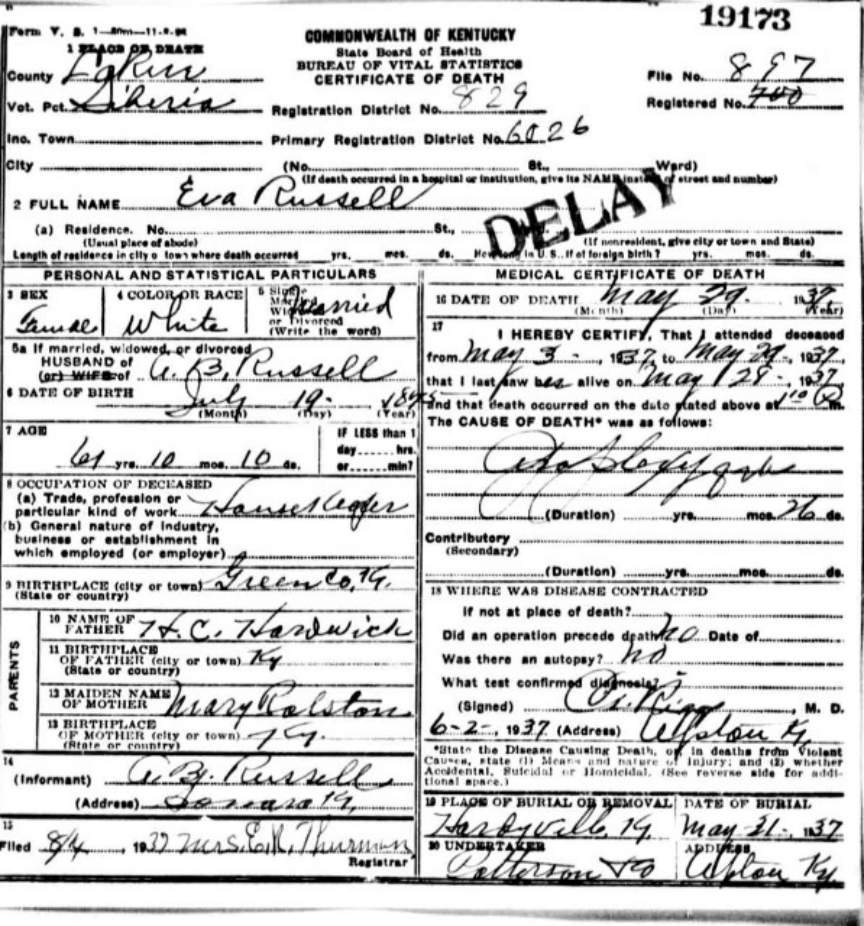 19173
Form V. S. 1
COMMONWEALTH OF KENTUCKY
State Board of Health
BUREAU OF VITAL STATISTICS
CERTIFICATE OF DEATH
1 PLACE OF DEATH
County
File No. 897
Vot. Pct. Siberia
Registration District No. 829
Registered No. 700
Inc. Town
Primary Registration District No. 6026
City (No. St., Ward)
(If death occurred in a hospital or institution, give its NAME instead of street and number)
2 FULL NAME Eva Russell
DELAY
(a) Residence. No. St.,
(Usual place of abode) (If nonresident, give city or town and State)
Length of residence in city or town where death occurred yrs. mos. ds. How long in U. S., if of foreign birth? yrs. mos. ds.
PERSONAL AND STATISTICAL PARTICULARS
3 SEX Femal
4 COLOR OR RACE White
5 Single Married Widowed or Divorced (Write the word) Married
5a If married, widowed, or divorced
HUSBAND of
(or) WIFE of A. B. Russell
6 DATE OF BIRTH July 19- 1875
(Month) (Day) (Year)
7 AGE
61 yrs. 10 mos. 10 ds.
IF LESS than 1
day hrs.
or min?
8 OCCUPATION OF DECEASED
(a) Trade, profession or
particular kind of work House Keeper
(b) General nature of industry,
business or establishment in
which employed (or employer)
9 BIRTHPLACE (city or town) Green Co, Ky.
(State or country)
PARENTS
10 NAME OF
FATHER H. C. Hardwick
11 BIRTHPLACE
OF FATHER (city or town) Ky
(State or country)
12 MAIDEN NAME
OF MOTHER Mary Ralston
13 BIRTHPLACE
OF MOTHER (city or town) Ky.
(State or country)
14
(Informant) A. B. Russell
(Address) Sonora Ky.
15
Filed 8/4, 1937 Mrs. E. K. Thurman
Registrar
MEDICAL CERTIFICATE OF DEATH
16 DATE OF DEATH May 29. 1937
(Month) (Day)
17
I HEREBY CERTIFY, That I attended deceased
from May 3-, 1937, to May 29-, 1937,
that I last saw her alive on May 28-, 1937,
and that death occurred on the date stated above at 1 10 P m.
The CAUSE OF DEATH* was as follows:
(Duration) yrs. mos. 26 ds.
Contributory
(Secondary)
(Duration) yrs. mos. ds.
18 WHERE WAS DISEASE CONTRACTED
If not at place of death?
Did an operation precede death? no Date of
Was there an autopsy? no
What test confirmed diagnosis?
(Signed), M. D.
6-2-, 1937 (Address) Upton Ky
*State the Disease Causing Death, or, in deaths from Violent
Causes, state (1) Means and nature of Injury; and (2) whether
Accidental, Suicidal or Homicidal. (See reverse side for addi-
tional space.)
19 PLACE OF BURIAL OR REMOVAL
Hardyville, Ky.
DATE OF BURIAL
May-31-, 1937
20 UNDERTAKER
Patterson & Co
ADDRESS
Upton Ky